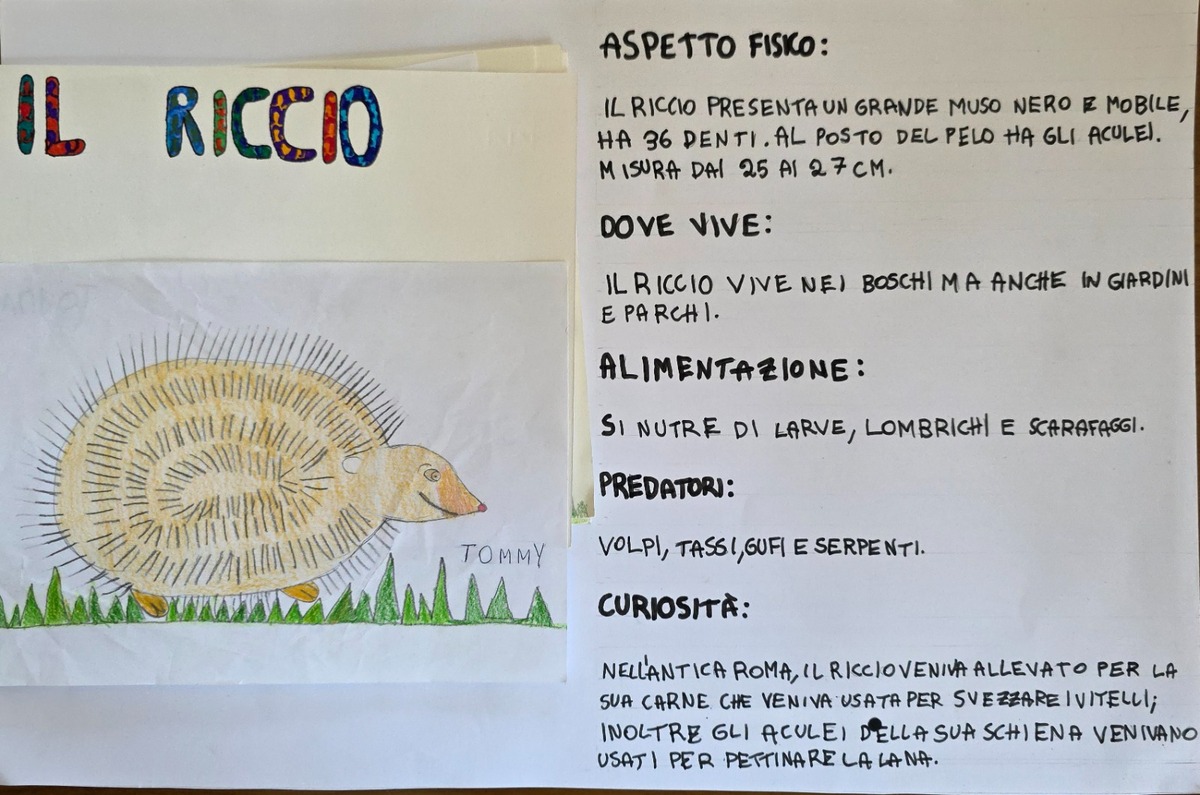 IL RICCIO
TOMMY
ASPETTO FISICO:
IL RICCIO PRESENTA UN GRANDE MUSO NERO E MOBILE,
HA 36 DENTI. AL POSTO DEL PELO HA GLI ACULEI.
MISURA DAI 25 AI 27 CM.
DOVE VIVE:
IL RICCIO VIVE NEI BOSCHI MA ANCHE IN GIARDINI
E PARCHI.
ALIMENTAZIONE:
SI NUTRE DI LARVE, LOMBRICHI E SCARAFAGGI.
PREDATORI:
VOLPI, TASSI, GUFI E SERPENTI.
CURIOSITÀ:
NELL'ANTICA ROMA, IL RICCIO VENIVA ALLEVATO PER LA
SUA CARNE CHE VENIVA USATA PER SVEZZARE I VITELLI;
INOLTRE GLI ACULEI DELLA SUA SCHIENA VENIVANO
USATI PER PETTINARE LA LANA.